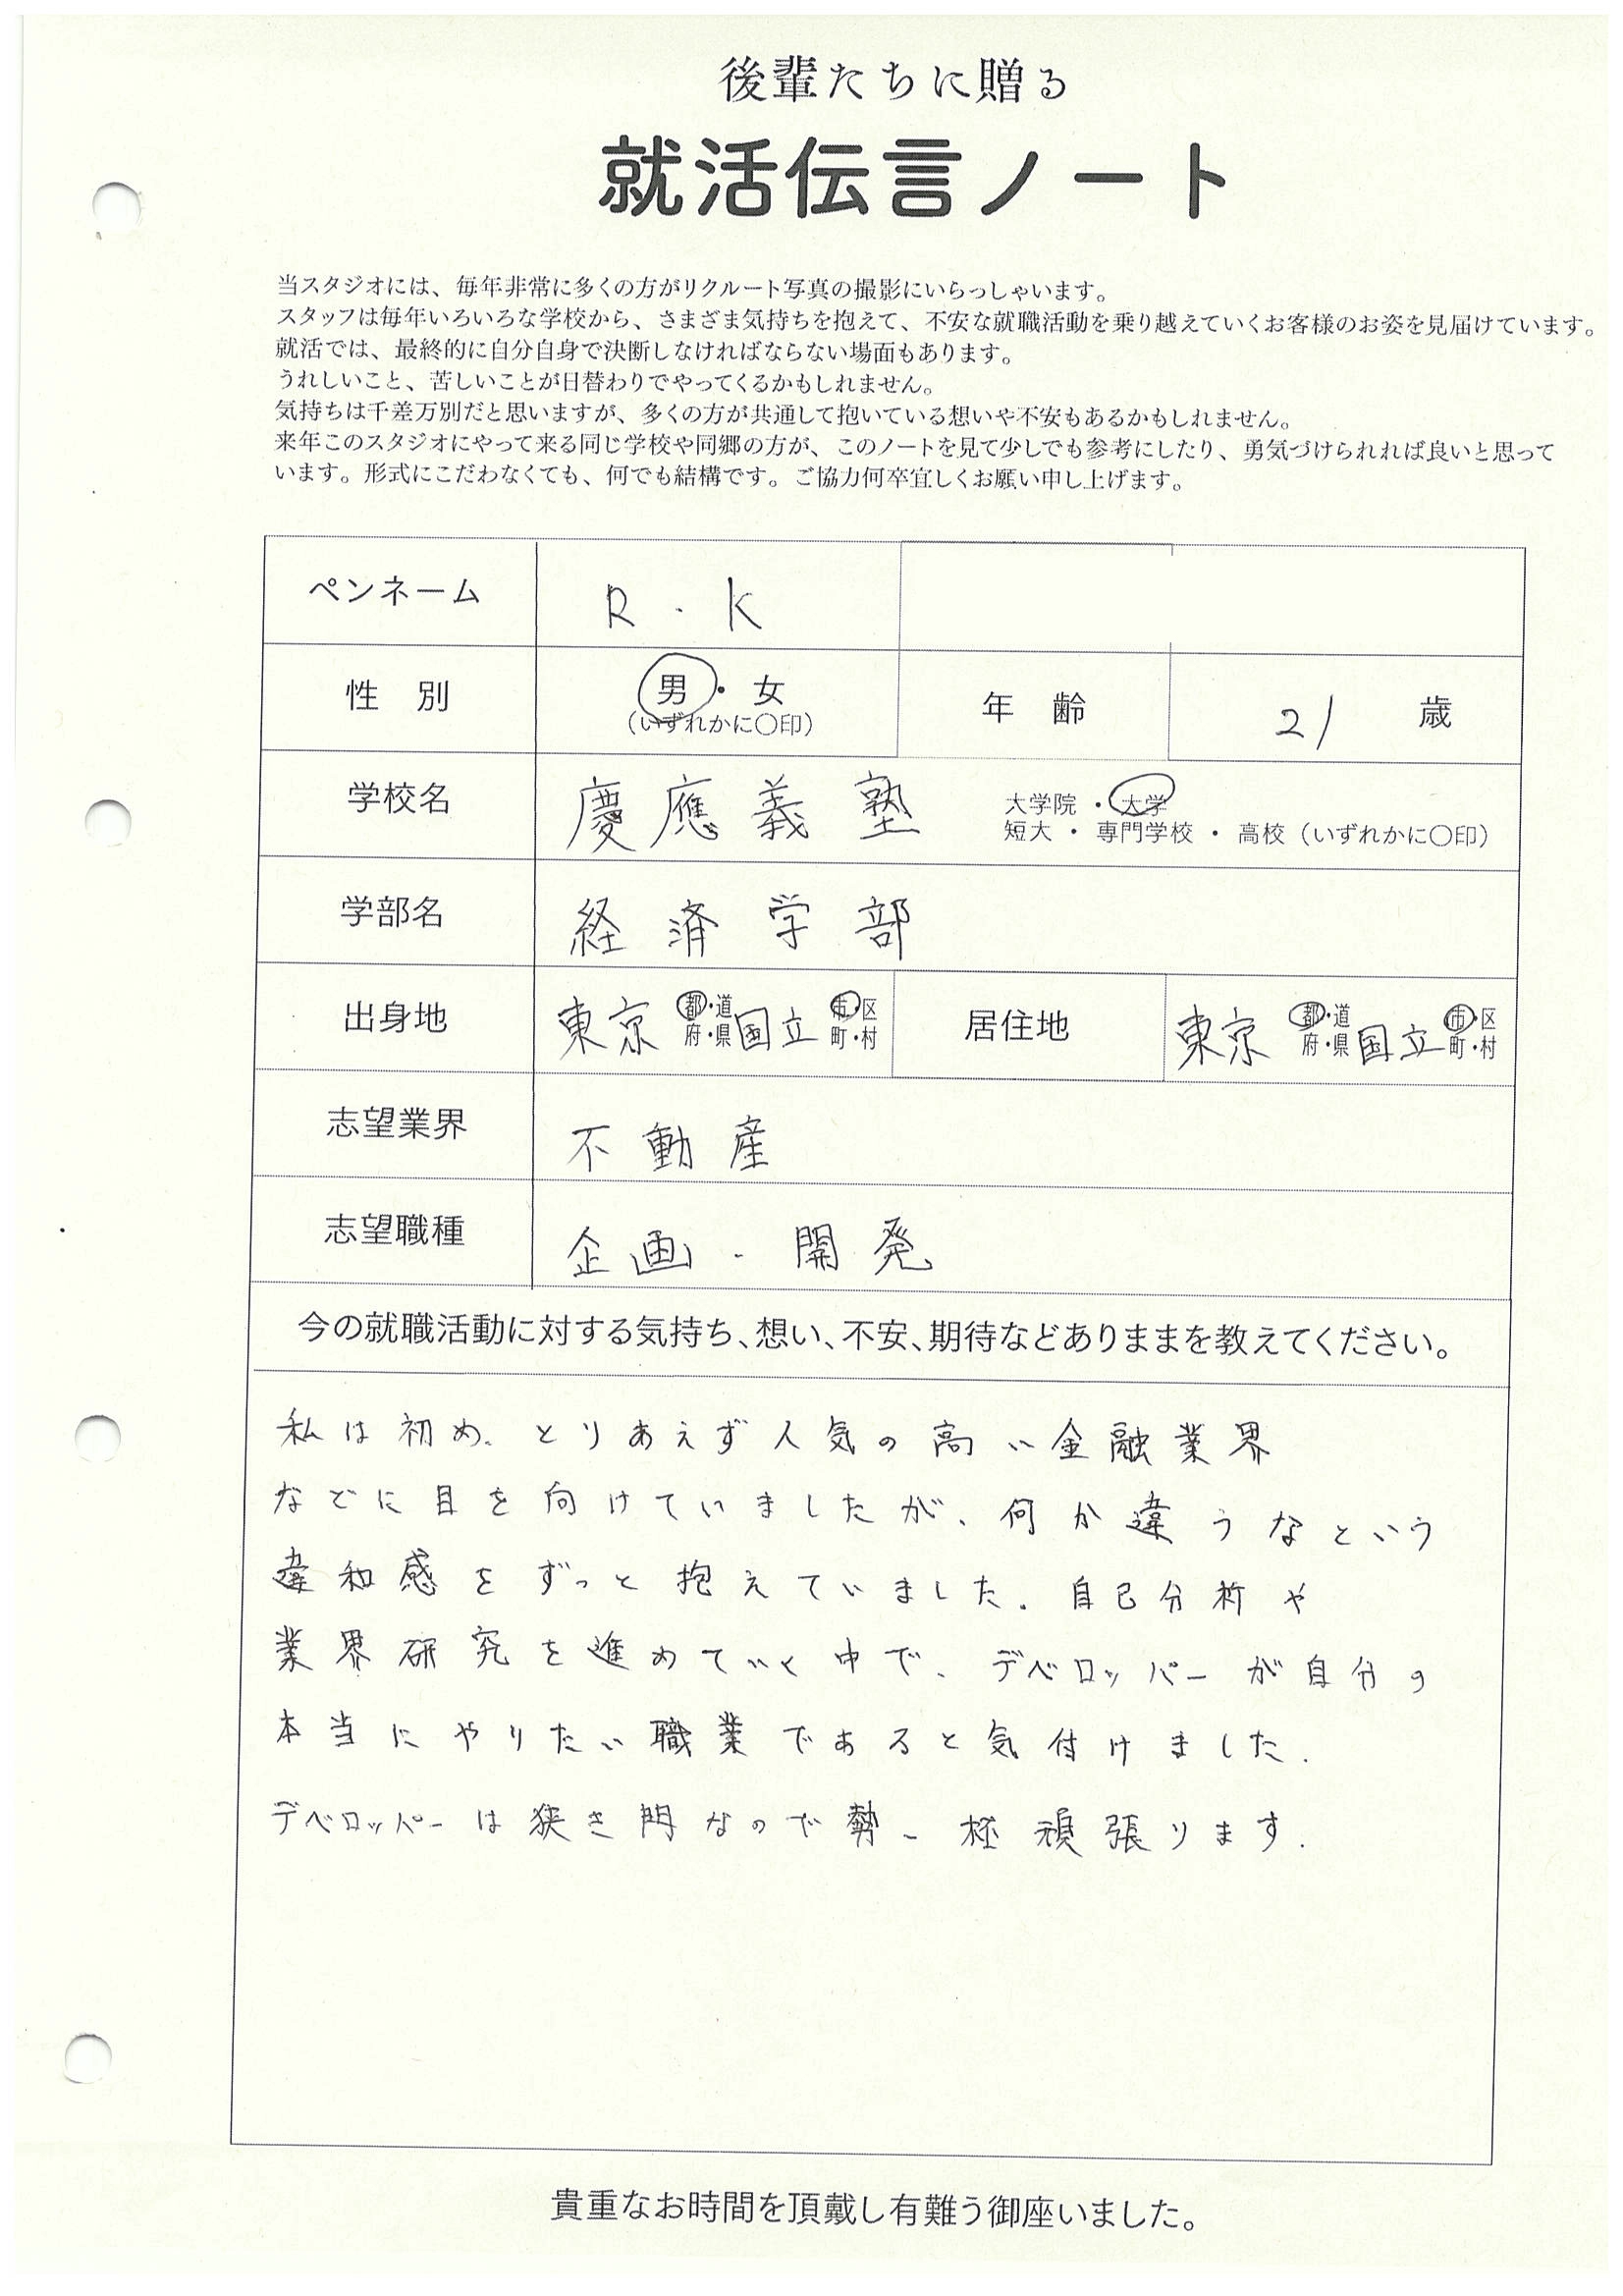 後輩たちに贈る
就活伝言ノート
当スタジオには、毎年非常に多くの方がリクルート写真の撮影にいらっしゃいます。
スタッフは毎年いろいろな学校から、さまざま気持ちを抱えて、不安な就職活動を乗り越えていくお客様のお姿を見届けています。
就活では、最終的に自分自身で決断しなければならない場面もあります。
うれしいこと、苦しいことが日替わりでやってくるかもしれません。
気持ちは千差万別だと思いますが、多くの方が共通して抱いている想いや不安もあるかもしれません。
来年このスタジオにやって来る同じ学校や同郷の方が、このノートを見て少しでも参考にしたり、勇気づけられれば良いと思って
います。形式にこだわなくても、何でも結構です。ご協力何卒宜しくお願い申し上げます。
ペンネーム R.K
性別 男・女 年齢 21 歳
(いずれかに〇印)
学校名 慶應義塾 大学院・大学
短大・専門学校・高校(いずれかに〇印)
学部名 経済学部
出身地 東京 都・道府・県 国立 市・区町・村 居住地 東京 都・道府・県 国立 市・区町・村
志望業界 不動産
志望職種 企画・開発
今の就職活動に対する気持ち、想い、不安、期待などありままを教えてください。
私は初め、とりあえず人気の高い金融業界
などに目を向けていましたが、何か違うなという
違和感をずっと抱えていました。自己分析や
業界研究を進めていく中で、デベロッパーが自分の
本当にやりたい職業であると気付けました.
デベロッパーは狭き門なので勢一杯頑張ります.
貴重なお時間を頂戴し有難う御座いました。